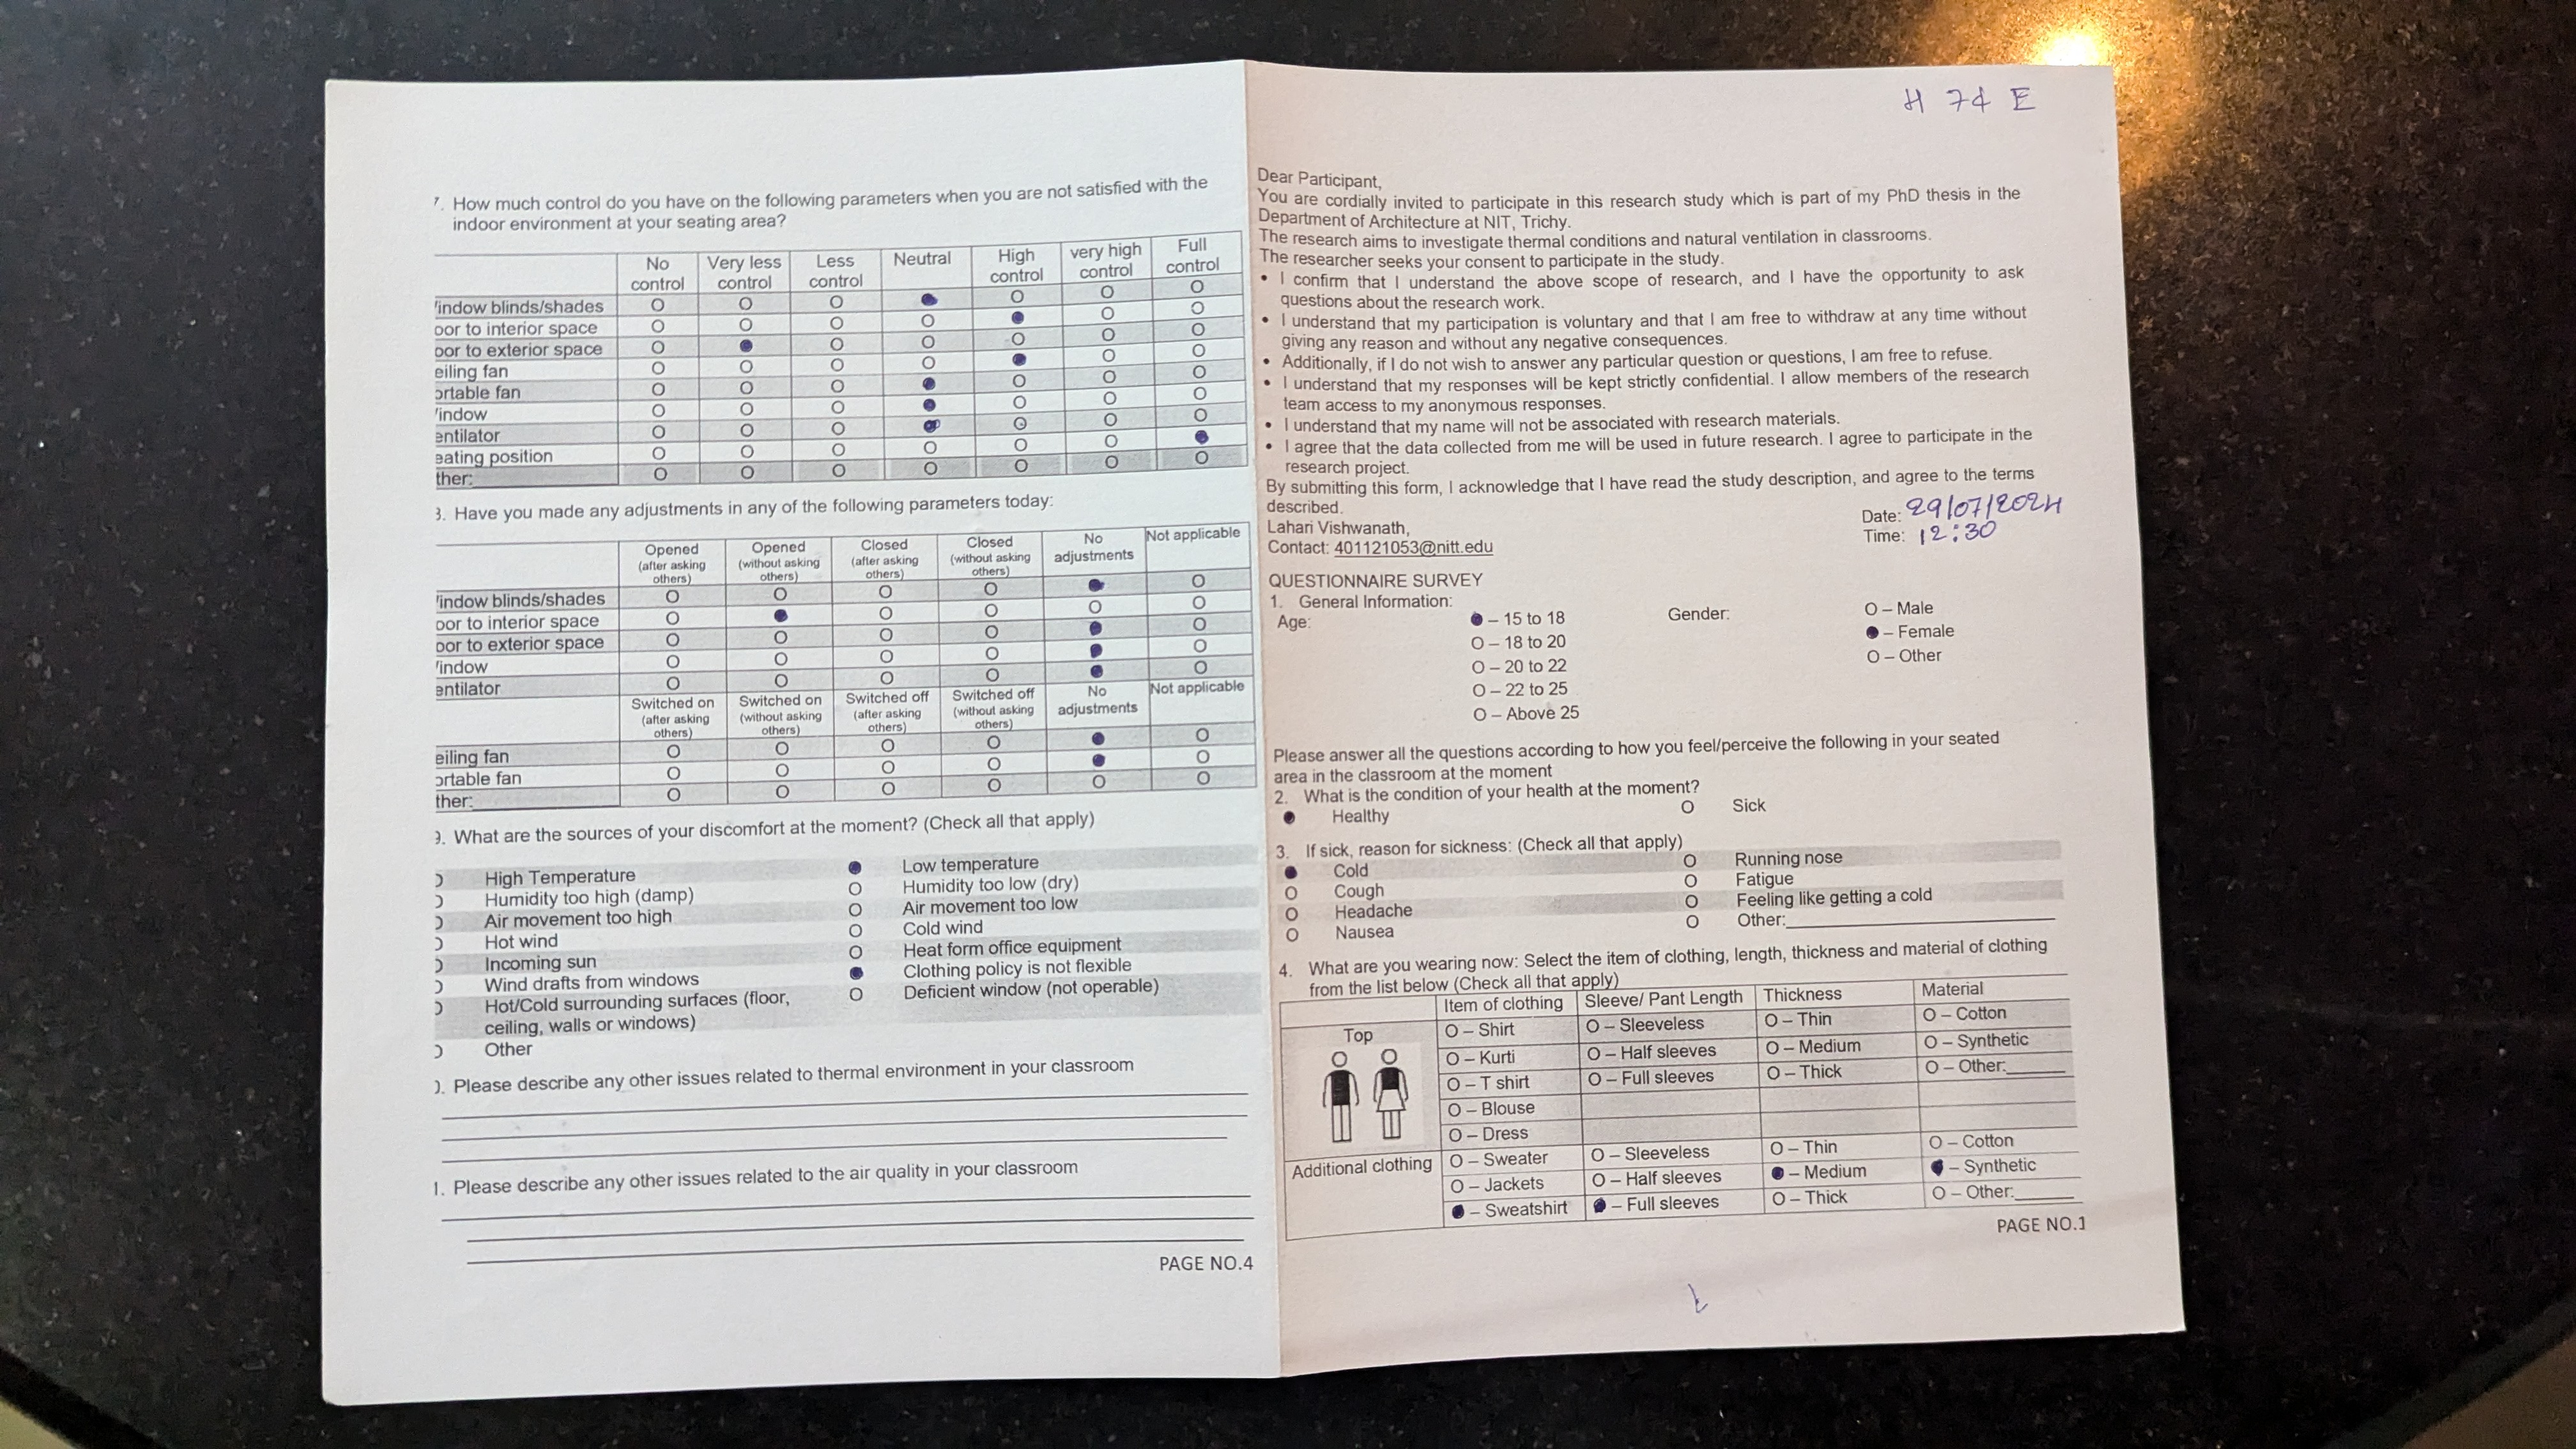 7. How much control do you have on the following parameters when you are not satisfied with the
indoor environment at your seating area?
No control Very less control Less control Neutral High control very high control Full control
indow blinds/shades O O O ● O O O
oor to interior space O O O O ● O O
oor to exterior space O ● O O O O O
eiling fan O O O O ● O O
ortable fan O O O ● O O O
indow O O O ● O O O
entilator O O O ● O O O
eating position O O O O O O ●
ther: O O O O O O O
3. Have you made any adjustments in any of the following parameters today:
Opened (after asking others) Opened (without asking others) Closed (after asking others) Closed (without asking others) No adjustments Not applicable
indow blinds/shades O O O O ● O
oor to interior space O ● O O O O
oor to exterior space O O O O ● O
indow O O O O ● O
entilator O O O O ● O
Switched on (after asking others) Switched on (without asking others) Switched off (after asking others) Switched off (without asking others) No adjustments Not applicable
eiling fan O O O O ● O
ortable fan O O O O ● O
ther: O O O O O O
9. What are the sources of your discomfort at the moment? (Check all that apply)
High Temperature ● Low temperature
Humidity too high (damp) O Humidity too low (dry)
Air movement too high O Air movement too low
Hot wind O Cold wind
Incoming sun O Heat form office equipment
Wind drafts from windows ● Clothing policy is not flexible
Hot/Cold surrounding surfaces (floor, O Deficient window (not operable)
ceiling, walls or windows)
Other
). Please describe any other issues related to thermal environment in your classroom
1. Please describe any other issues related to the air quality in your classroom
PAGE NO.4
H 74 E
Dear Participant,
You are cordially invited to participate in this research study which is part of my PhD thesis in the
Department of Architecture at NIT, Trichy.
The research aims to investigate thermal conditions and natural ventilation in classrooms.
The researcher seeks your consent to participate in the study.
• I confirm that I understand the above scope of research, and I have the opportunity to ask
questions about the research work.
• I understand that my participation is voluntary and that I am free to withdraw at any time without
giving any reason and without any negative consequences.
• Additionally, if I do not wish to answer any particular question or questions, I am free to refuse.
• I understand that my responses will be kept strictly confidential. I allow members of the research
team access to my anonymous responses.
• I understand that my name will not be associated with research materials.
• I agree that the data collected from me will be used in future research. I agree to participate in the
research project.
By submitting this form, I acknowledge that I have read the study description, and agree to the terms
described.
Lahari Vishwanath,
Contact: 401121053@nitt.edu
Date: 29/07/2024
Time: 12:30
QUESTIONNAIRE SURVEY
1. General Information:
Age: ● – 15 to 18 Gender: O – Male
O – 18 to 20 ● – Female
O – 20 to 22 O – Other
O – 22 to 25
O – Above 25
Please answer all the questions according to how you feel/perceive the following in your seated
area in the classroom at the moment
2. What is the condition of your health at the moment?
● Healthy O Sick
3. If sick, reason for sickness: (Check all that apply)
● Cold O Running nose
O Cough O Fatigue
O Headache O Feeling like getting a cold
O Nausea O Other:
4. What are you wearing now: Select the item of clothing, length, thickness and material of clothing
from the list below (Check all that apply)
Item of clothing Sleeve/ Pant Length Thickness Material
Top O – Shirt O – Sleeveless O – Thin O – Cotton
O – Kurti O – Half sleeves O – Medium O – Synthetic
O – T shirt O – Full sleeves O – Thick O – Other:
O – Blouse
O – Dress
Additional clothing O – Sweater O – Sleeveless O – Thin O – Cotton
O – Jackets O – Half sleeves ● – Medium ● – Synthetic
● – Sweatshirt ● – Full sleeves O – Thick O – Other:
PAGE NO.1